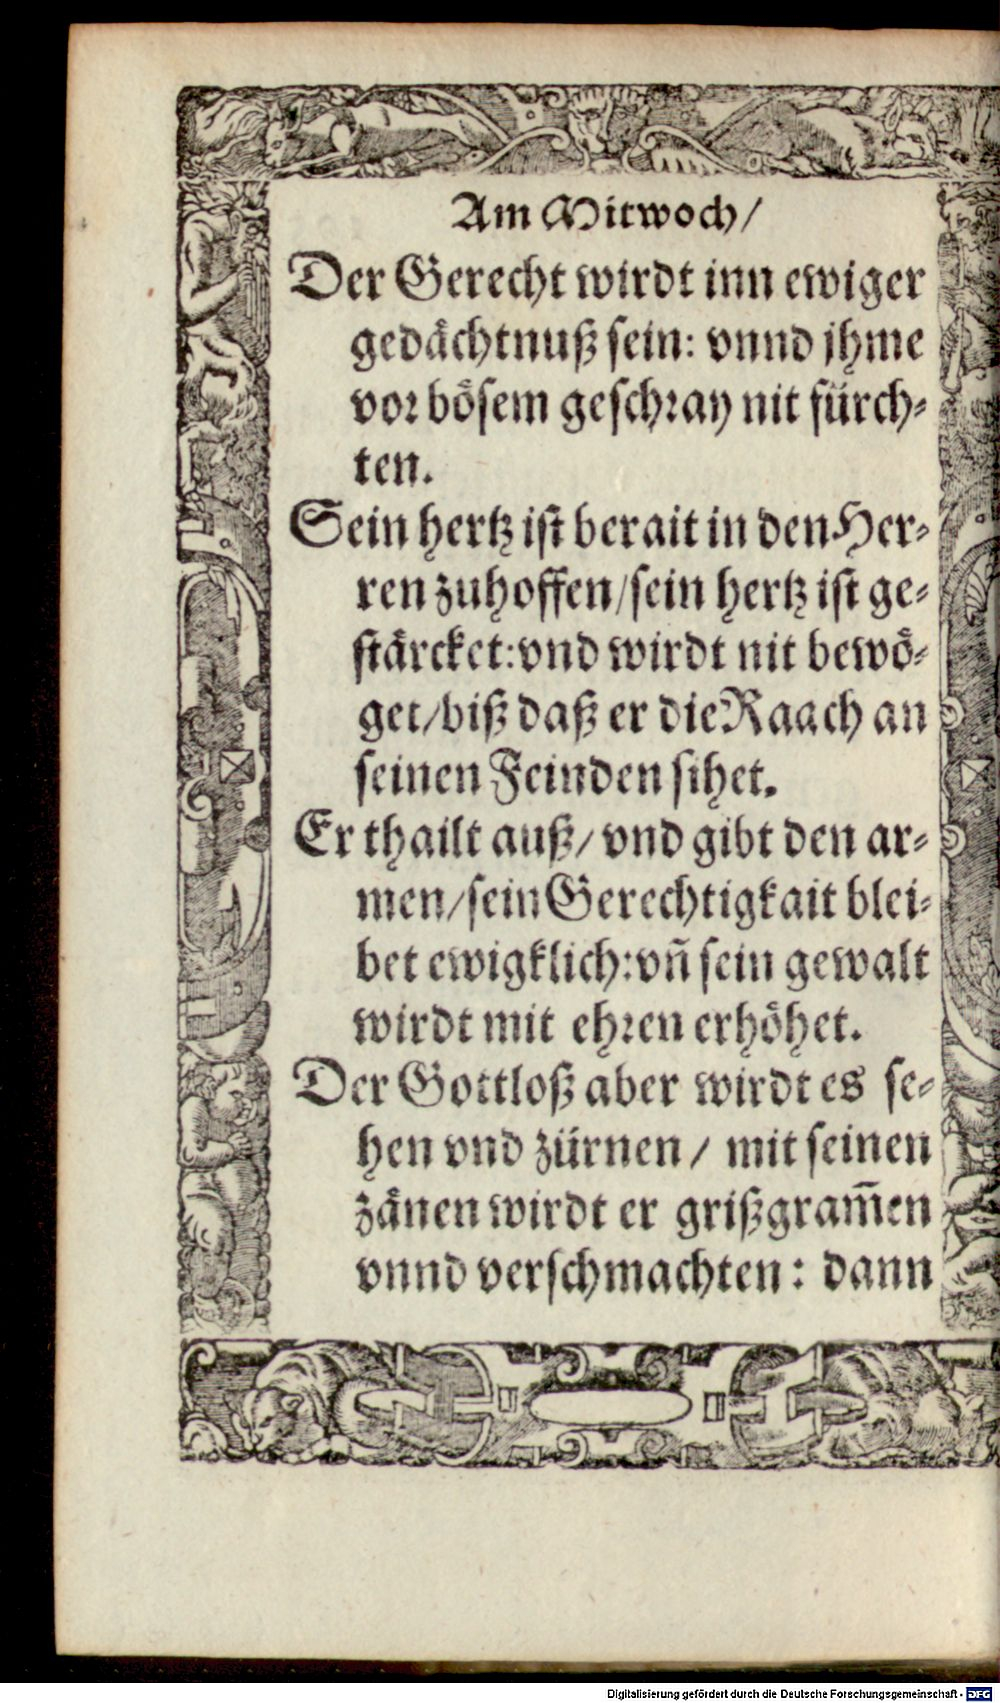 Am Mitwoch/
Der Gerecht wirdt inn ewiger
gedächtnuß sein: vnnd jhme
vor bösem geschray nit fürch⸗
ten.
Sein hertz ist berait in den Her⸗
ren zuhoffen/sein hertz ist ge⸗
stärcket:vnd wirdt nit bewö⸗
get/biß daß er die Raach an
seinen Feinden sihet.
Er thailt auß/vnd gibt den ar⸗
men/sein Gerechtigkait blei⸗
bet ewigklich:vñ sein gewalt
wirdt mit ehren erhöhet.
Der Gottloß aber wirdt es se⸗
hen vnd zürnen/ mit seinen
zänen wirdt er grißgram̃en
vnnd verschmachten: dann
Digitalisierung gefördert durch die Deutsche Forschungsgemeinschaft - DFG